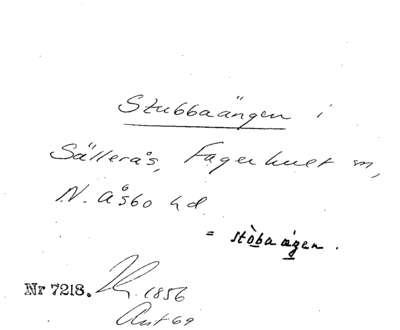 Stubbaängen i
Sällerås, Fagerhult m,
N. Åsbo hd.
= stòba ägen.
Nr 7218. 1856